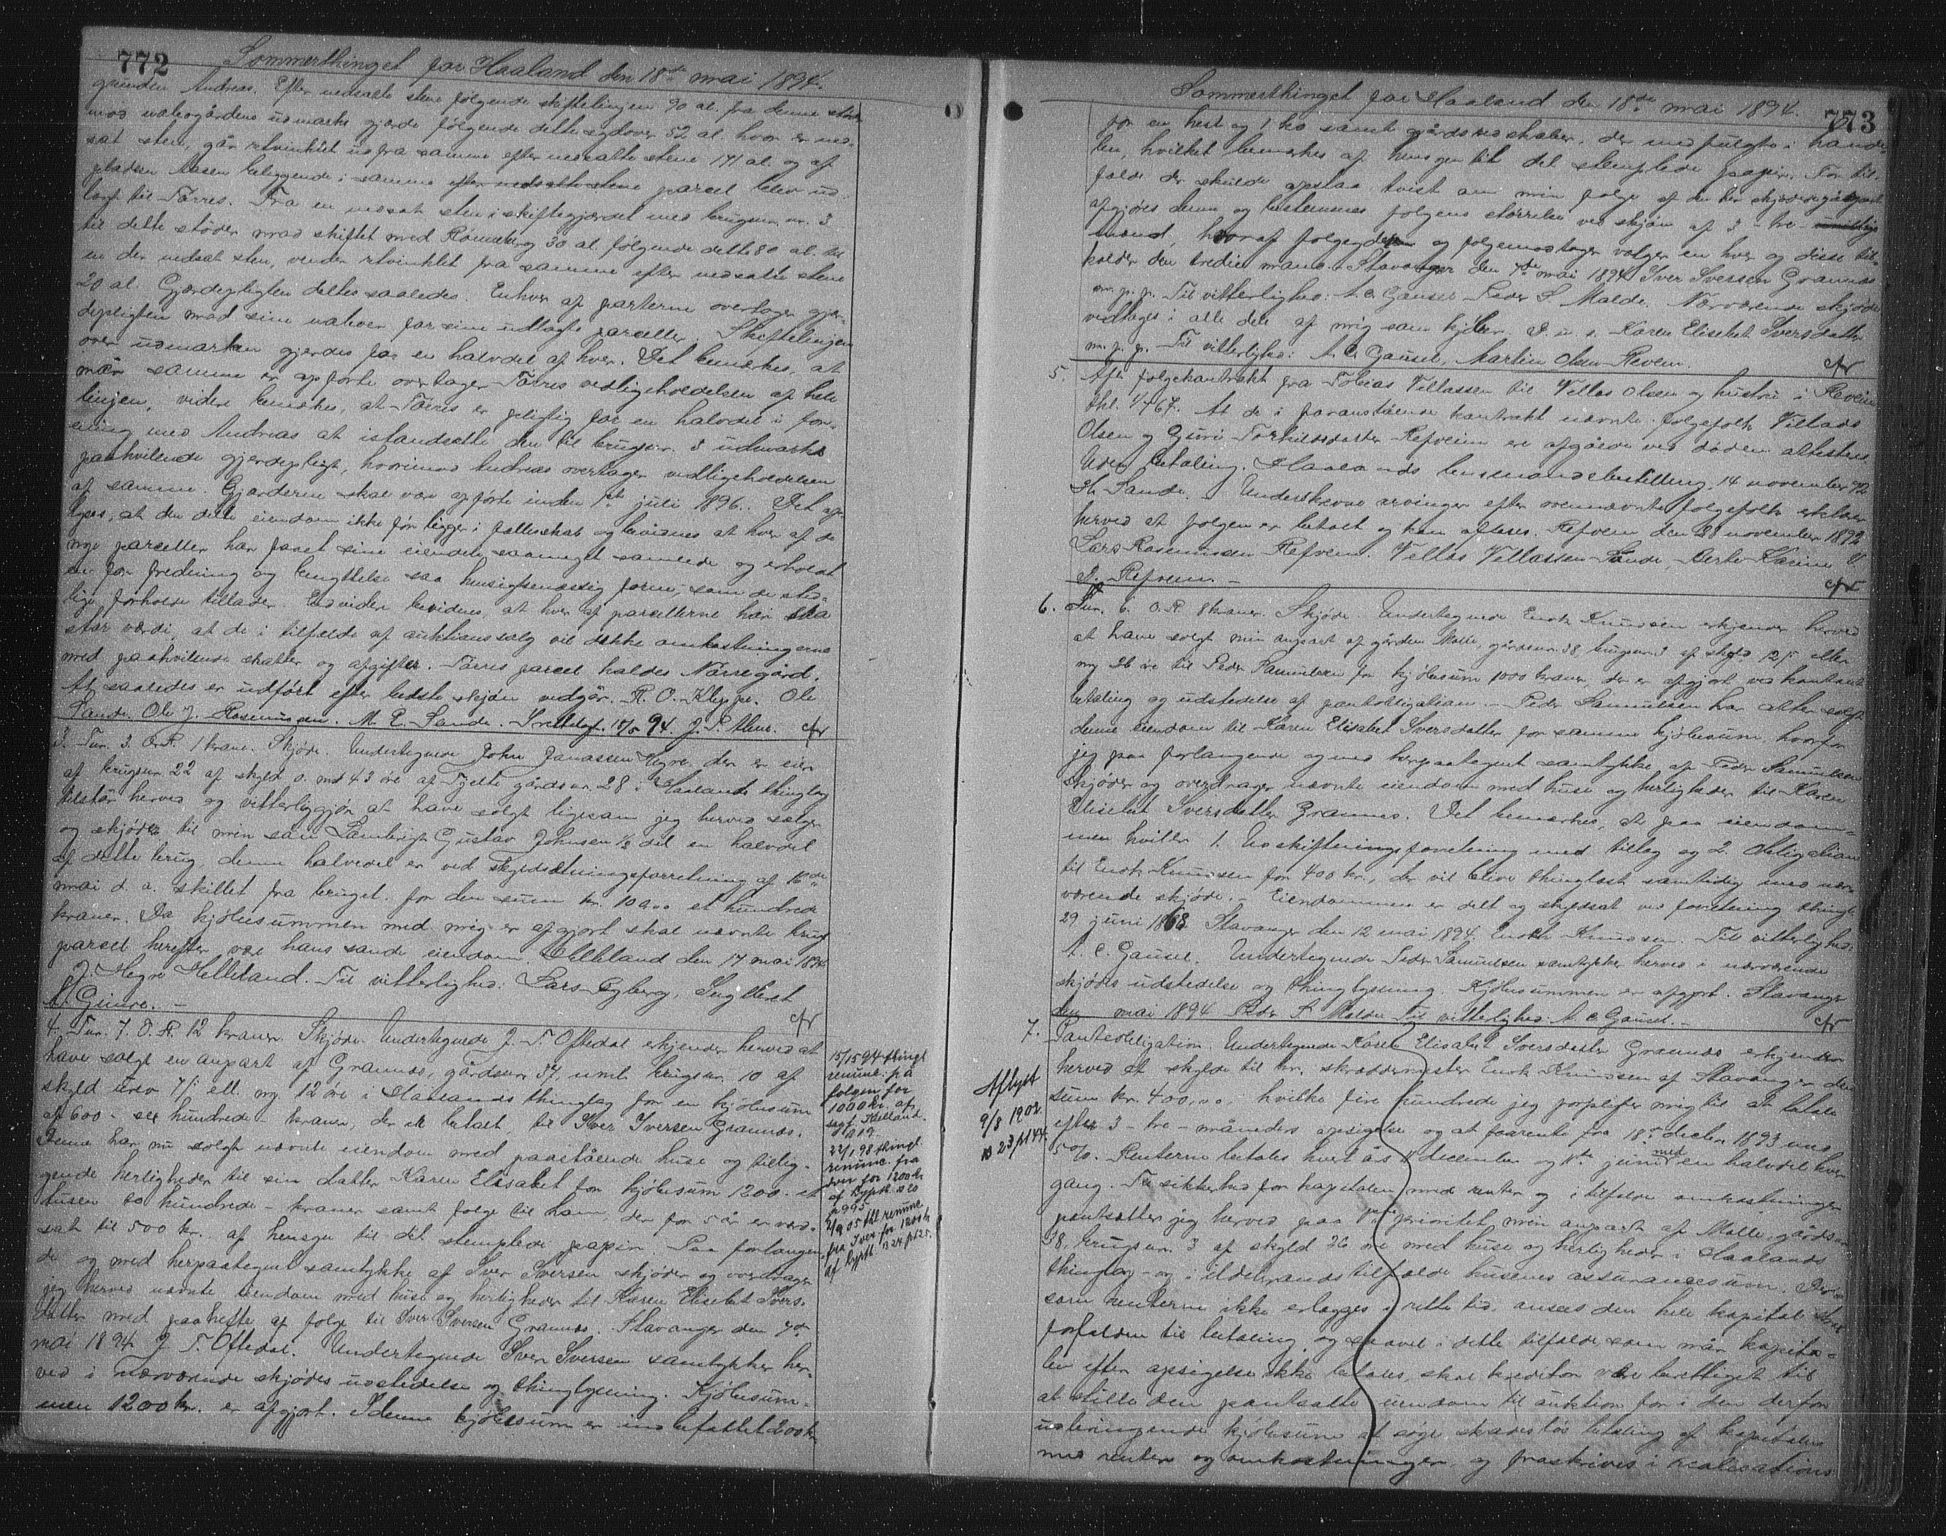 772
Sommerthinget for Haaland den 18de mai 1894.
grunden Andreas. Efter nedsatte stene følgende skiftelinjen 90 al. fra denne
mod nabogårdens udmarks gjerde følgende dette sydover 52 al. hvor er ned-
sat sten, går retvinklet ud fra samme efter nedsatte stene 141 al. og af
pladsen Aasen beliggende i samme efter nedsatte stene parcel blev ud-
lagt til Tørres. Fra en nedsat sten i skiftegjerdet med brugsnr. 3
til dette støder mod skiftet med Rønneberg 30 al. følgende dette 80 al. til
en der nedsat sten, vender retvinklet fra samme efter nedsatte stene
20 al. Gjerdepligten deltes saaledes. Enhver af parterne overtager gjer-
depligten mod sine naboer for sine udlagte parceller. Skiftelinjen
over udmarken gjerdes for en halvdel af hver. Det bemerkes, at
når samme er opført overtager Tørres vedligeholdelsen af hele
linjen, videre bemerkes, at Tørres er pligtig for en halvdel i for-
ening med Andreas at istandsætte den til brugsnr. 3 udmarks
paahvilende gjerdepligt, hvorimod Andreas overtager vedligeholdelsen
af samme. Gjerderne skal være opførte inden 1ste juli 1896. Det op-
lyses, at den delte eiendom ikke før ligger i fællesskab og bevidnes at hver af de
nye parceller har faaet sine eiendele saameget samlede og erholdt
en for fredning og benyttelse saa hensigtsmæssig form, som de sted-
lige forholde tillader. Endvidere bevidnes, at hver af parcellerne har saa
stor værdi, at de i tilfælde af auktionssalg vil dække omkostningerne
med paahvilende skatter og afgifter. Tørres parcel kaldes Nørregård.
At saaledes er udført efter bedste skjøn vedgår. R. O. Kleppe. Ole
Sande. Ole J. Rasmussen. M. E. Sande. 94 cfr
3. Lnr. 3. O. R. 1 krone. Skjøde. Undertegnede John Jonassen Hegre, der er eier
af brugsnr. 22 af skyld 0 md 43 øre af Tjelte gårdsnr. 28 i Haalands thinglag
tilstår herved og vitterliggjør at have solgt ligesom jeg herved sælger
og skjøder til min søn Lambrigt Gustav Johnsen 1/2 del en halvdel
af dette brug, denne halvdel er ved skyldsætningsforretning af 16de
mai d. a. skillet fra bruget for den sum kr. 100,00 et hundrede
kroner. Da kjøbesummen med mig er afgjort skal nævnte brug
parcel herefter være hans sande eiendom. Helleland den 17 mai 1894
J. Hegre Helleland. Til vitterlighed: Lars Egberg, Ingebret
A. Gimre. – cfr
4. Lnr. 7. O. R. 12 kroner. Skjøde. Undertegnede J. T. Oftedal erkjender herved at
have solgt en anpart af Grannes, gårdsnr. 37, numr. brugsnr. 10 af
skyld urev. 7/5 ell. ny 12 øre i Haalands thinglag for en kjøbesum
af 600 – sex hundrede – kroner, der er betalt, til Iver Iversen Grannes.
Denne har nu solgt nævnte eiendom med paastående huse og tillig-
gende herligheder til sin datter Karen Elisabet for kjøbesum 1200 – et
tusen to hundrede – kroner samt folge til ham, der for 5 år er vær-
sat til 500 kr. af hensyn til det stemplede papir. Paa forlangen-
de og med herpaategnet samtykke af Iver Iversen skjøder og overdrager
jeg herved nævnte eiendom med huse og herligheder til Karen Elisabet Ivers-
datter med paahefte af folge til Iver Iversen Grannes. Stavanger den 7de
mai 1894. J. T. Oftedal. Undertegnede Iver Iversen samtykker her-
ved i nærværende skjødes udstedelse og thinglysning. Kjøbesum-
men 1200 kr. er afgjort. I denne kjøbesum er indbefattet 200 kr
15/1594 thingl
renunc. på
folgen for
1000 kr. af
sept. Helland
22/1 98 thingl
renunc. fra
Iver for 1200 kr
af
p 995
renunc.
fra Iver for 1200 kr
773
Sommerthinget for Haaland den 18de mai 1894.
for en hest og 1 ko samt gårdsredskaber, der medfulgte i hande-
len, hvilket bemerkes af hensyn til det stemplede papir. For til-
fælde der skulde opstaa tvist om min folge af den her skjødede gårdpart
afgjøres denne og bestemmes folgens størrelse ved skjøn af 3 – tre –
mænd, hvoraf folgeyderen og folgemodtager vælger en hver og disse til-
kalder den tredie mand. Stavanger den 7de mai 1894. Iver Iversen Grannes
m. p. p. Til vitterlighed: A. C. Gausel. Peder S. Malde. Nærværende skjøde
vedtages i alle dele af mig som kjøber. D. u. s. Karen Elisabet Iversdatter
m. p. p. Til vitterlighed: A. C. Gausel, Martin Olsen Reveim. cfr
5. Afl. folgekontrakt fra Tobias Villassen til Villas Olsen og hustru i Reveim
thl. 1/467. At de i foranstående kontrakt nævnte folgefolk Villads
Olsen og Guri Torkildsdatter Refveim er afgåede ved døden attesteres
uden betaling. Haalands lensmandsbestilling 14 november 92
H. Sande. – Underskrevne arvinger efter ovennævnte folgefolk erklærer
herved at folgen er betalt og kan aflæses. Refveim den 28 november 1892
Lars Rasmussen Refveim. Villas Villassen Sande, Berte Karine V
D. Refveim. – cfr
6. Lnr. 6. O. R. 8 kroner. Skjøde. Undertegnede Enok Knudsen erkjender herved
at have solgt min anpart af gården Malle, gårdsnr. 38, brugsnr. 3 af skyld 12/5 eller
ny 26 øre til Peder Samuelsen for kjøbesum 1000 kroner, der er afgjort ved kontant
betaling og udstedelse af pantobligation. – Peder Samuelsen har atter solgt
denne eiendom til Karen Elisabet Iversdatter for samme kjøbesum, hvorfor
jeg paa forlangende og med herpaategnet samtykke af Peder Samuelsen
skjøder og overdrager nævnte eiendom med huse og herligheder til Karen
Elisabet Iversdatter Grannes. Det bemerkes, at paa eiendom-
men hviler 1. Udskiftningsforretning med tillæg og 2. Obligation
til Enok Knudsen for 400 kr., der vil blive thinglæst samtidig med nær-
værende skjøde. – Eiendommen er delt og skyldsat ved forretning thingl.
29 juni 1868. Stavanger den 12 mai 1894. Enok Knudsen. Til vitterlighed:
A. C. Gausel. Undertegnede Peder Samuelsen samtykker herved i nærværende
skjødes udstedelse og thinglysning. Kjøbesummen er afgjort. Stavanger
den mai 1894. Peder S. Malde. Til vitterlighed: A. C. Gausel. – cfr
7. Pantobligation. Undertegnede Karen Elisabet Iversdatter Grannes erkjender
herved at skylde til hr. skræddermester Enok Knudsen af Stavanger den
sum kr. 400,00, hvilke fire hundrede jeg forpligter mig til at betale
efter 3 – tre – måneders opsigelse og at forrente fra 18de decbr. 1893 med
5 0/0. Renterne betales hvert år 11 december og 11te juni med en halvdel hver
gang. Til sikkerhed for kapitalen med renter og i tilfælde omkostninger
pantsætter jeg herved paa 1ste prioritet min anpart af Malle, gårdsnr.
38, brugsnr. 3 af skyld 26 øre med huse og herligheder i Haalands
thinglag – og i ildebrandstilfælde husenes assurancesum. Der-
som renterne ikke erlægges i rette tid, ansees den hele kapital
forfalden til betaling, og saavel i dette tilfælde som når kapita-
len efter opsigelse ikke betales, skal kreditor være berettiget til
at stille den pantsatte eiendom til auktion for i den derfor
udbringende kjøbesum at søge skadesløs betaling af kapitalen
med renter og omkostninger, og fraskrives i realisations
Aflyst
9/8 1902.